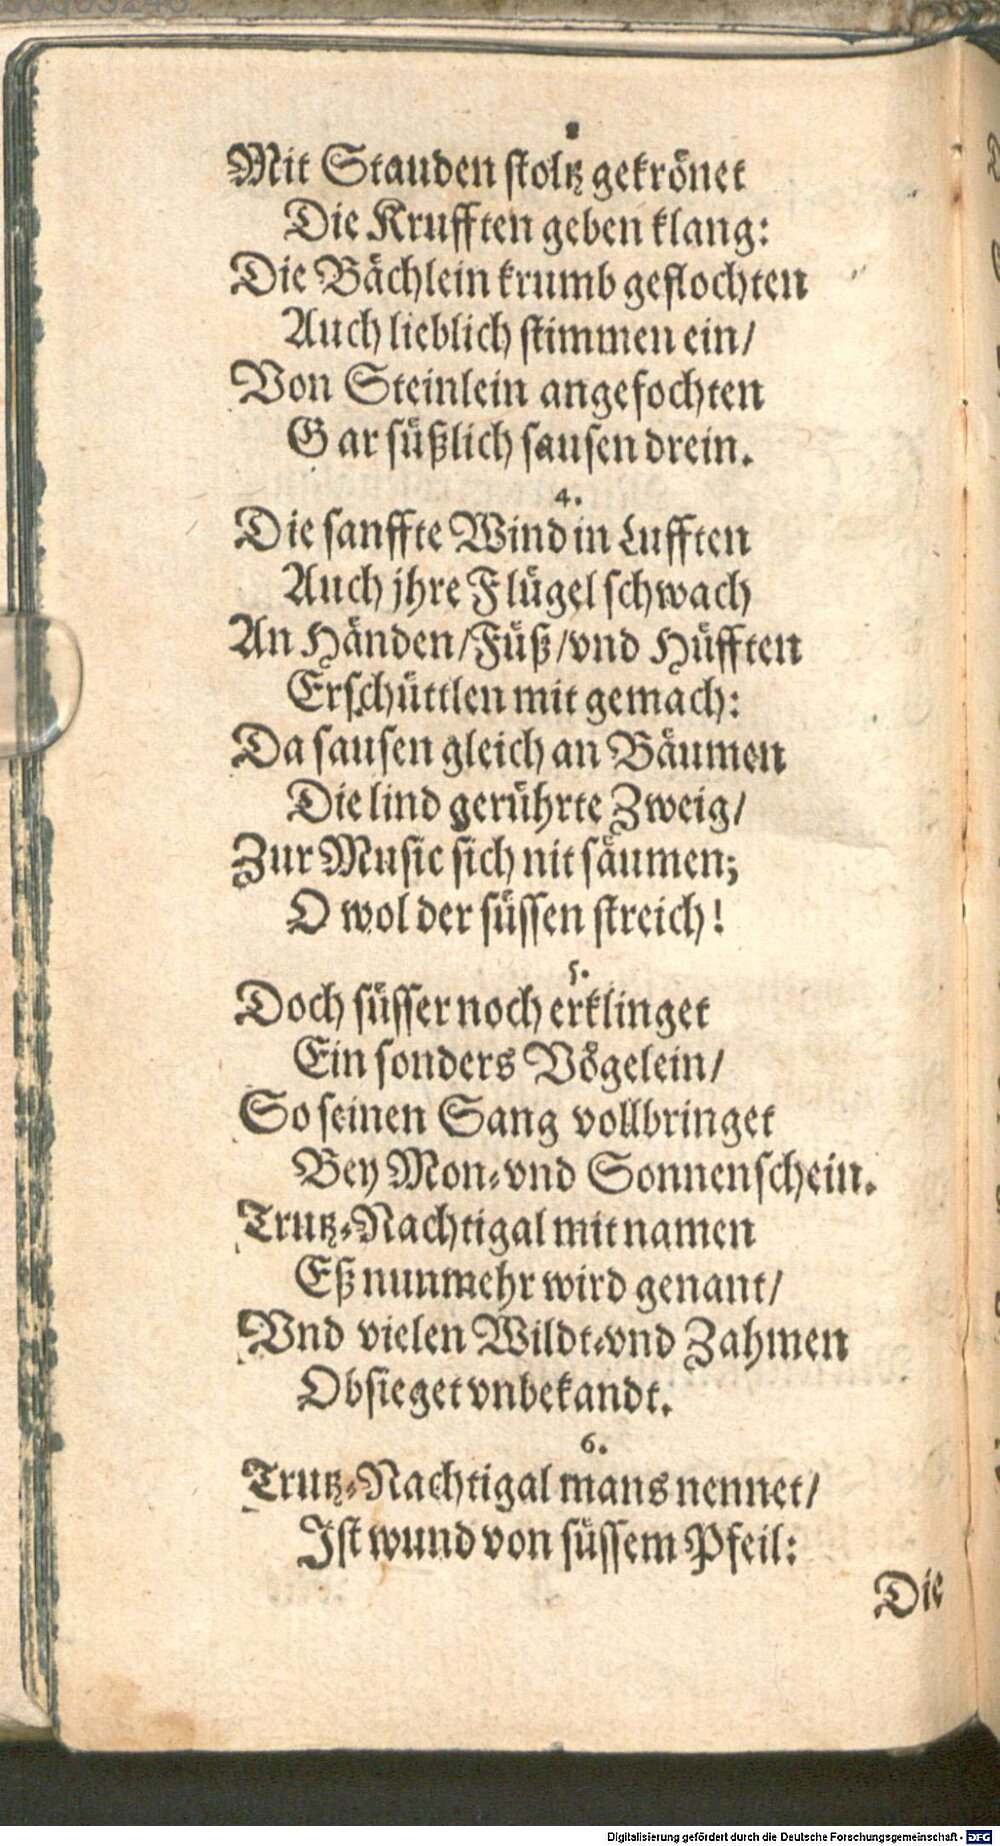 Mit Stauden stoltz gekrönet
Die Krufften geben klang:
Die Bächlein krumb geflochten
Auch lieblich stimmen ein/
Von Steinlein angefochten
Gar süßlich sausen drein.
4.
Die sanffte Wind in Lufften
Auch jhre Flügel schwach
An Händen/Füß/vnd Hüfften
Erschüttlen mit gemach:
Da sausen gleich an Bäumen
Die lind gerührte Zweig/
Zur Music sich nit säumen;
O wol der süssen streich!
5.
Doch süsser noch erklinget
Ein sonders Vögelein/
So seinen Sang vollbringet
Bey Mon-vnd Sonnenschein.
Trutz-Nachtigal mit namen
Eß nunmehr wird genant/
Vnd vielen Wildt-vnd Zahmen
Obsieget vnbekandt.
6.
Trutz-Nachtigal mans nennet/
Ist wund von süssem Pfeil:
Die
Digitalisierung gefördert durch die Deutsche Forschungsgemeinschaft - DFG